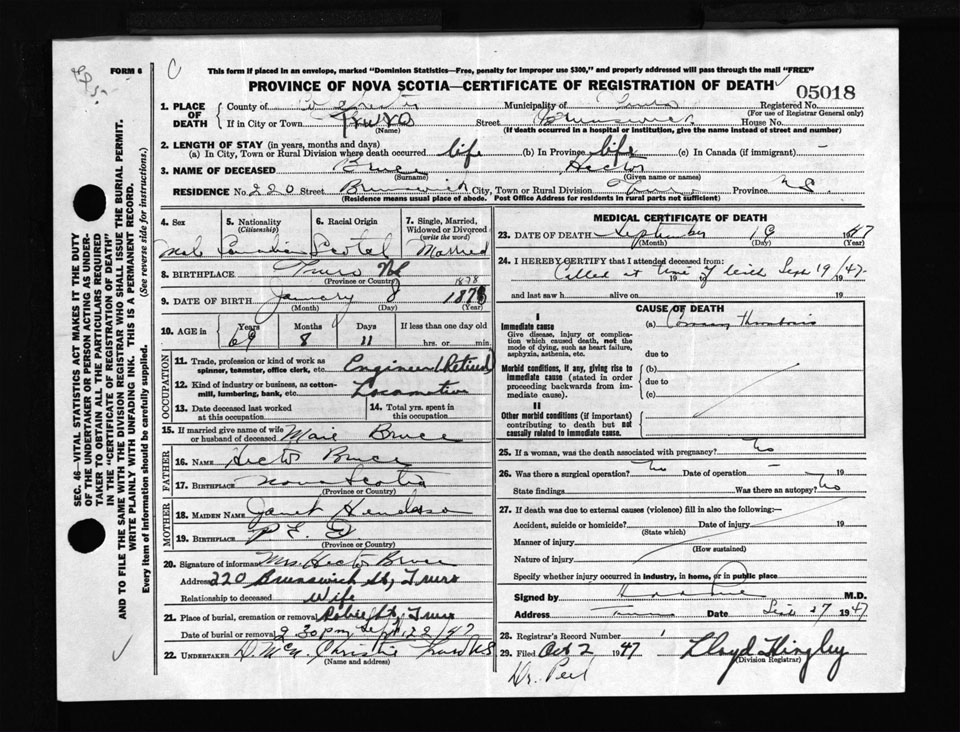 FORM 6
This form if placed in an envelope, marked "Dominion Statistics—Free, penalty for improper use $300," and properly addressed will pass through the mail "FREE"
PROVINCE OF NOVA SCOTIA—CERTIFICATE OF REGISTRATION OF DEATH
05018
1. PLACE OF DEATH
County of Municipality of Truro Registered No.
(For use of Registrar General only)
If in City or Town Truro Street Brunswick House No.
(Name) (If death occurred in a hospital or institution, give the name instead of street and number)
2. LENGTH OF STAY (in years, months and days)
(a) In City, Town or Rural Division where death occurred life (b) In Province life (c) In Canada (if immigrant) —
3. NAME OF DECEASED Bruce Hector
(Surname) (Given name or names)
RESIDENCE No. 220 Street Brunswick City, Town or Rural Division Truro Province N.S.
(Residence means usual place of abode. Post Office Address for residents in rural parts not sufficient)
4. Sex 5. Nationality (Citizenship) 6. Racial Origin 7. Single, Married, Widowed or Divorced (write the word)
Male Canadian Scotch Married
8. BIRTHPLACE Truro NS
(Province or Country)
1878
9. DATE OF BIRTH January 8 1878
(Month) (Day) (Year)
10. AGE in Years Months Days If less than one day old
69 8 11 hrs. or min.
OCCUPATION
11. Trade, profession or kind of work as spinner, teamster, office clerk, etc. Engineer (Retired)
12. Kind of industry or business, as cotton-mill, lumbering, bank, etc. Locomotive
13. Date deceased last worked at this occupation
14. Total yrs. spent in this occupation
15. If married give name of wife or husband of deceased Marie Bruce
FATHER
16. NAME Hector Bruce
17. BIRTHPLACE Nova Scotia
(Province or Country)
MOTHER
18. MAIDEN NAME Janet Henderson
19. BIRTHPLACE P.E.I.
(Province or Country)
20. Signature of informant Mrs. Hector Bruce
Address 220 Brunswick St, Truro
Relationship to deceased Wife
21. Place of burial, cremation or removal Robie St, Truro
Date of burial or removal 2.30 pm Sept. 22/47
22. UNDERTAKER D. McN. Christie Truro N.S.
(Name and address)
MEDICAL CERTIFICATE OF DEATH
23. DATE OF DEATH September 19 1947
(Month) (Day) (Year)
24. I HEREBY CERTIFY that I attended deceased from:
Called at time of death Sept 19/47.
19 19
and last saw h alive on 19
CAUSE OF DEATH
I
Immediate cause
Give disease, injury or complication which caused death, not the mode of dying, such as heart failure, asphyxia, asthenia, etc.
(a) Coronary Thrombosis
due to
Morbid conditions, if any, giving rise to immediate cause (stated in order proceeding backwards from immediate cause).
(b)
due to
(c)
II
Other morbid conditions (if important) contributing to death but not causally related to immediate cause.
25. If a woman, was the death associated with pregnancy? No
26. Was there a surgical operation? No Date of operation — 19
State findings Was there an autopsy? No
27. If death was due to external causes (violence) fill in also the following:—
Accident, suicide or homicide? Date of injury 19
(State which)
Manner of injury
(How sustained)
Nature of injury
Specify whether injury occurred in industry, in home, or in public place
Signed by M.D.
Address Truro Date Sept 27 1947
28. Registrar's Record Number
29. Filed Oct 2 1947 Lloyd Hingley
(Division Registrar)
Dr. Peel
SEC. 46—VITAL STATISTICS ACT MAKES IT THE DUTY OF THE UNDERTAKER OR PERSON ACTING AS UNDERTAKER TO OBTAIN ALL THE PARTICULARS REQUIRED IN THE "CERTIFICATE OF REGISTRATION OF DEATH" AND TO FILE THE SAME WITH THE DIVISION REGISTRAR WHO SHALL ISSUE THE BURIAL PERMIT.
WRITE PLAINLY WITH UNFADING INK. THIS IS A PERMANENT RECORD.
Every item of information should be carefully supplied. (See reverse side for instructions.)